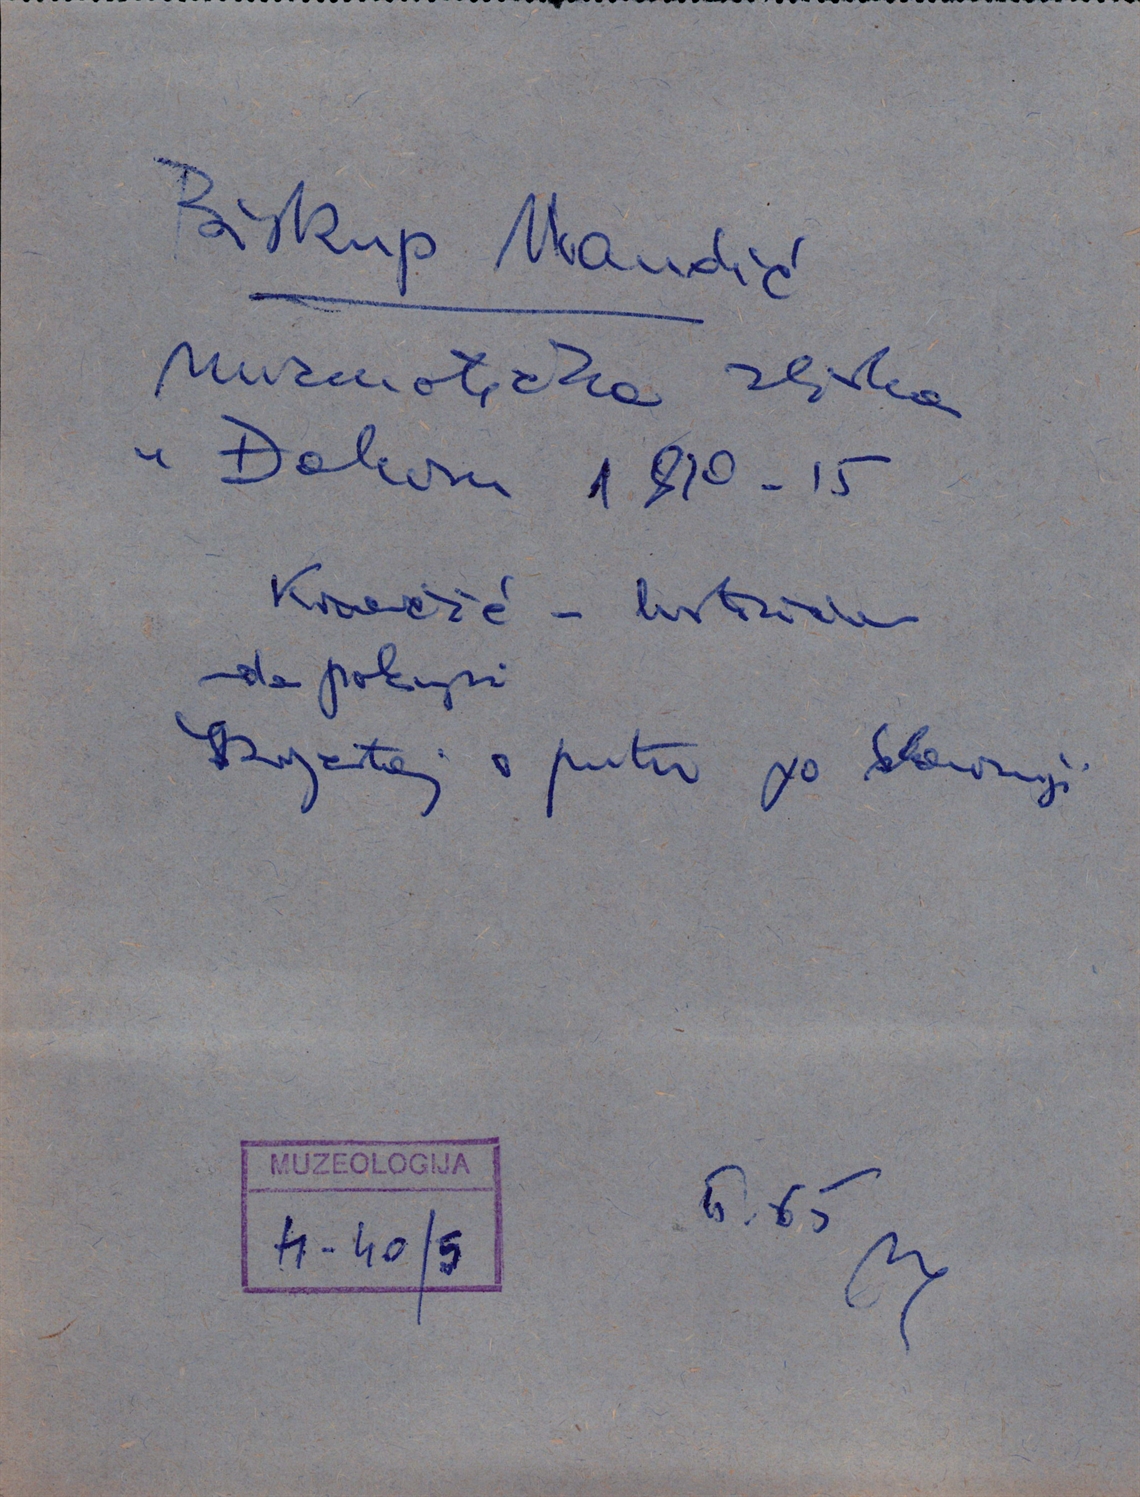 Biskup Mandić
numizmatička zbirka
u Đakovu 1910-15
Knezčić -
da pokupi
Izvještaj o putu po Slavoniji
MUZEOLOGIJA
H-40/5
6. 65